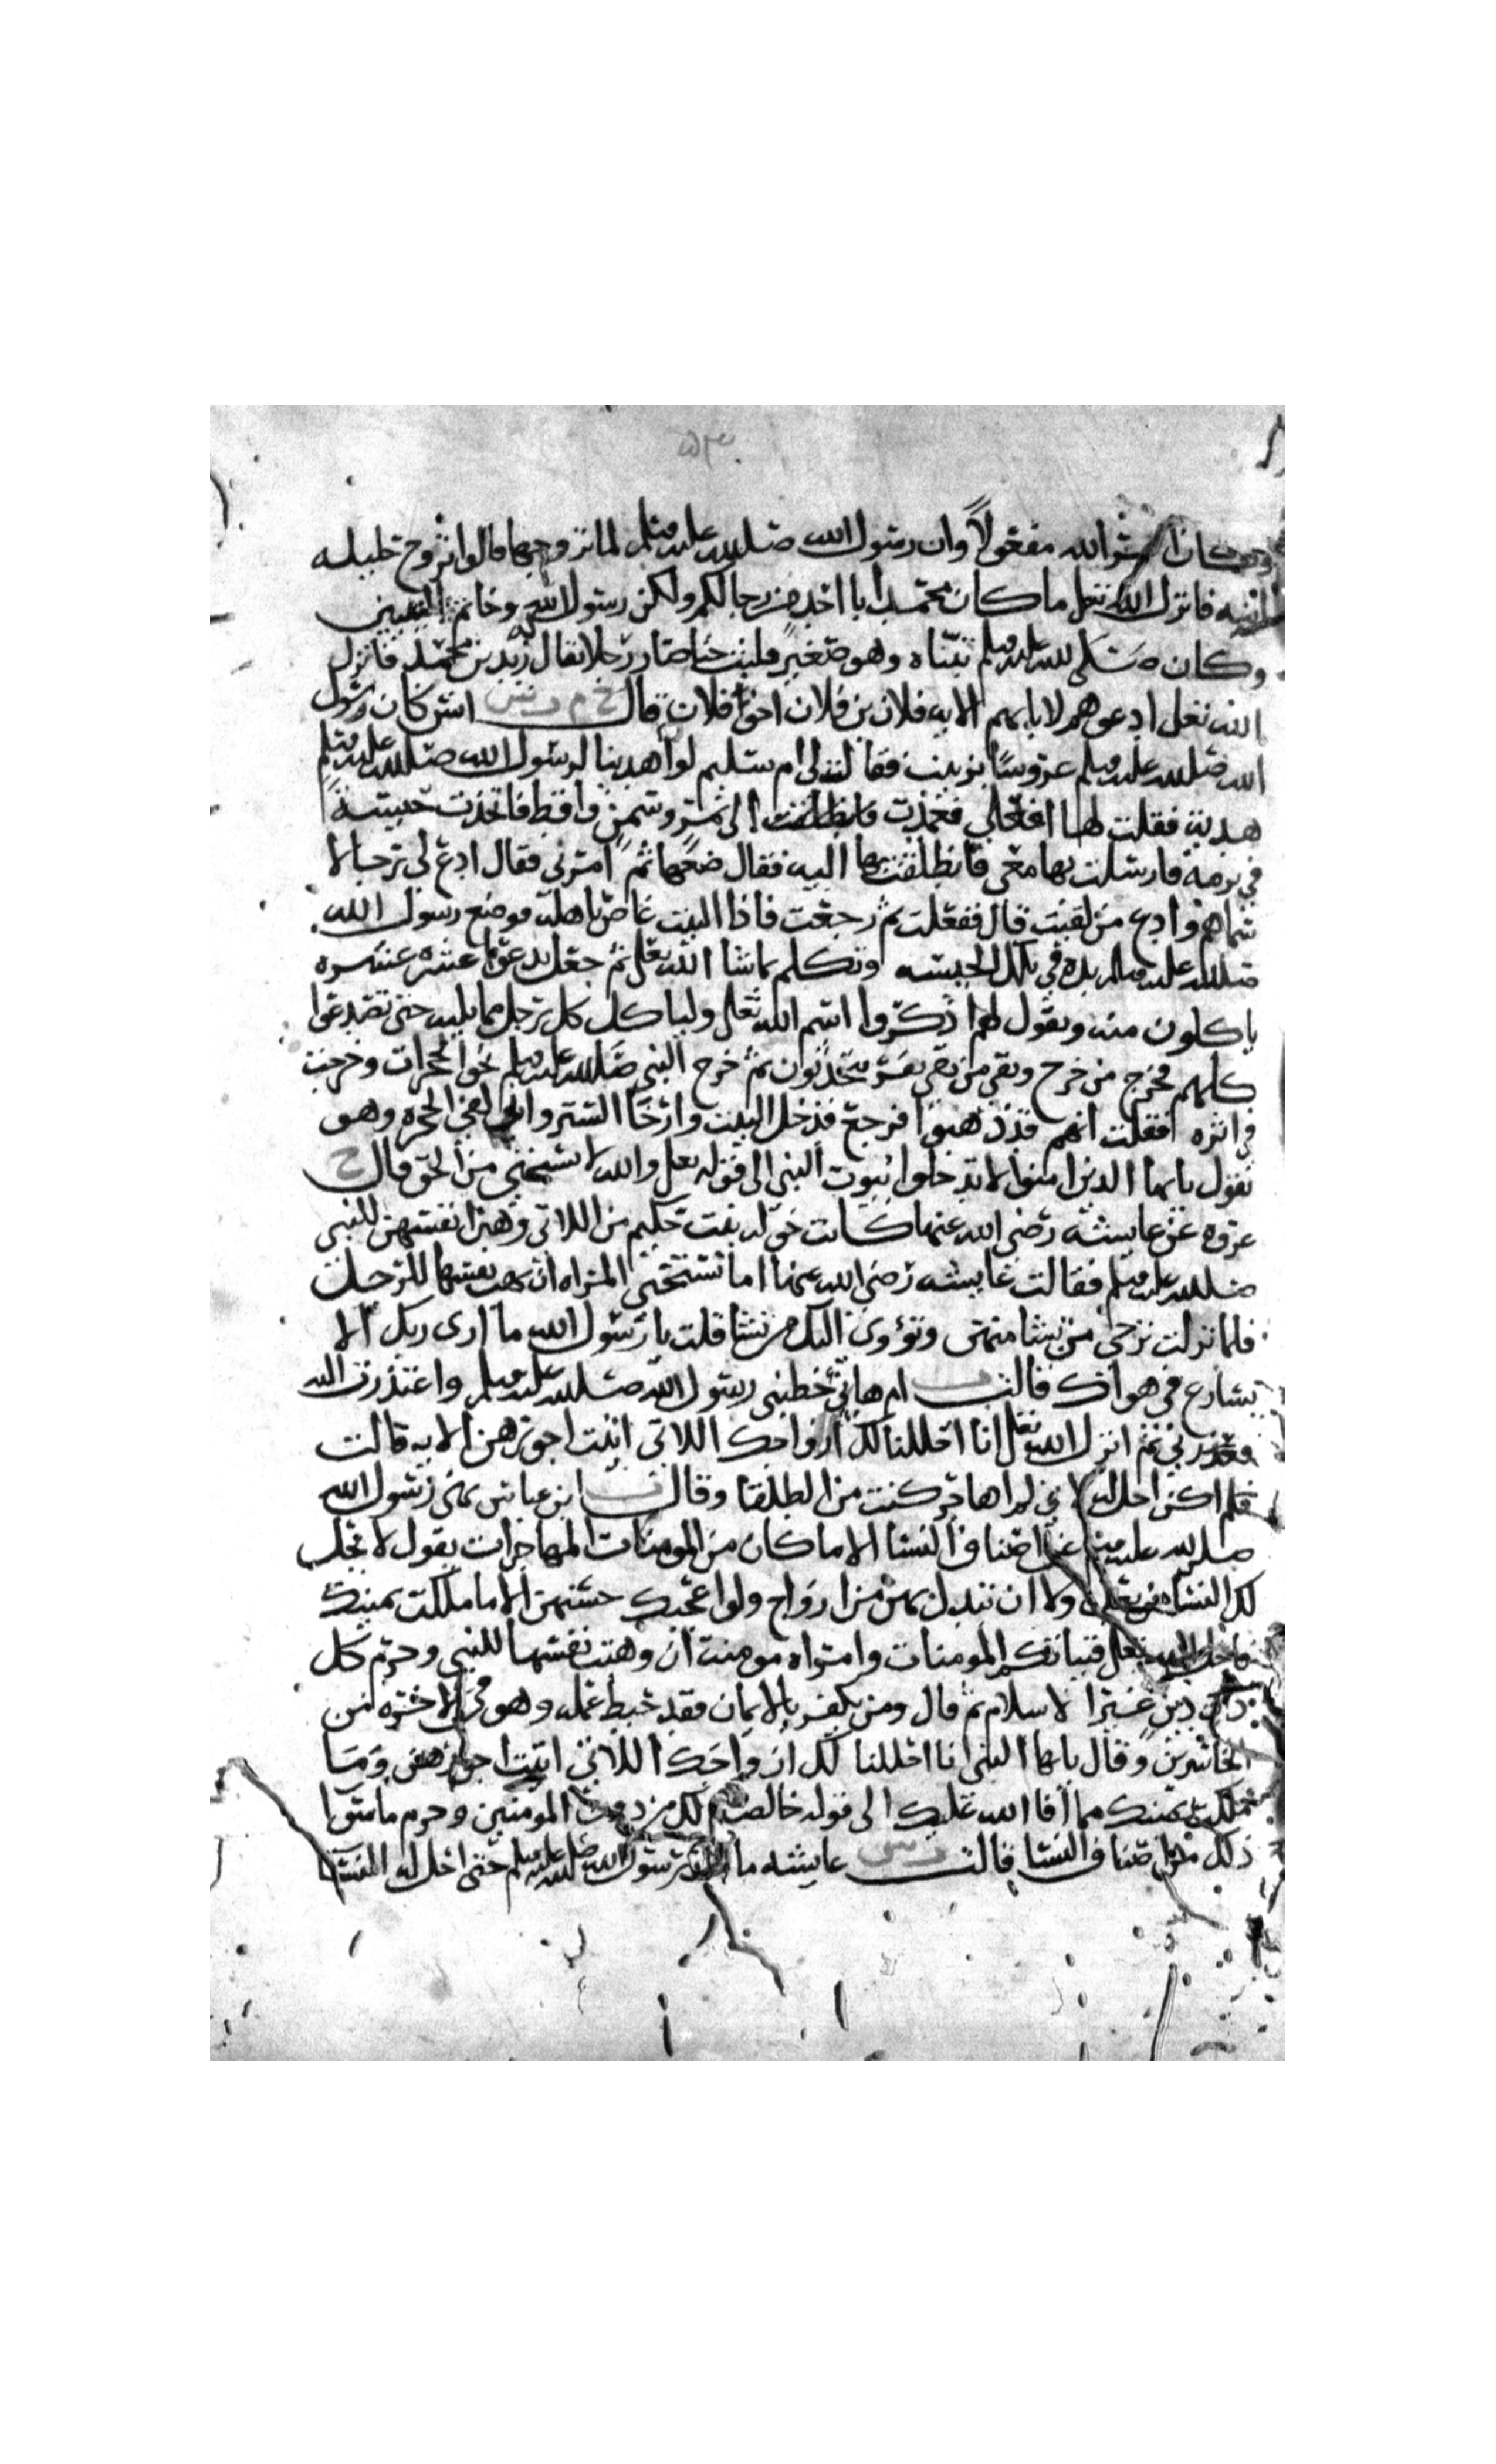 وكان امر الله مفعولا وان رسول الله صلى الله عليه وسلم لما تزوجها قالوا تزوج حليلة
ابنه فانزل الله تعالى ما كان محمد ابا احد من رجالكم ولكن رسول الله وخاتم النبيين
وكان صلى الله عليه وسلم تبناه وهو صغير فلبث حتى صار رجلا يقال له زيد بن محمد فانزل
الله تعالى ادعوهم لابايهم الايه فلان بن فلان اخو فلان قال خ م ت س انس كان رسول
الله صلى الله عليه وسلم عروسا بزينب فقالت لى ام سليم لو اهدينا لرسول الله صلى الله عليه وسلم
هديه فقلت لها افعلى فعمدت الى تمر وسمن واقط فاتخذت حيسة
في برمة فارسلت بها معى فانطلقت بها اليه فقال ضعها ثم امرنى فقال ادع لى رجالا
سماهم وادع من لقيت قال ففعلت ثم رجعت فاذا البيت غاص باهله فوضع رسول الله
صلى الله عليه وسلم يده في تلك الحيسه وتكلم بما شا الله تعالى ثم جعل يدعوا عشره عشره
ياكلون منه ويقول لهم اذكروا اسم الله تعالى ولياكل كل رجل مما يليه حتى تصدعوا
كلهم فخرج من خرج وبقى من بقى نفر يتحدثون ثم خرج النبي صلى الله عليه وسلم نحو الحجرات وخرجت
في اثره فقلت انهم قد ذهبوا فرجع فدخل البيت وارخا الستر وانى لفى الحجره وهو
يقول يايها الذين امنوا لا تدخلوا بيوت النبي الى قوله تعالى والله لا يستحيى من الحق قال خ
عروه عن عايشه رضى الله عنها كانت خوله بنت حكيم من اللاتى وهبن انفسهن للنبي
صلى الله عليه وسلم فقالت عايشه رضى الله عنها اما تستحى المراه ان تهب نفسها للرجل
فلما نزلت ترجى من تشا منهن وتؤوى اليك من تشا قلت يا رسول الله ما ارى ربك الا
يسارع في هواك قالت ت ام هانى خطبنى رسول الله صلى الله عليه وسلم واعتذرت اليه
فعذرنى ثم انزل الله تعالى انا احللنا لك ازواجك اللاتى اتيت اجورهن الايه قالت
فلم اكن احل له لانى لم اهاجر كنت من الطلقا وقال ت ابن عباس نهى رسول الله
صلى الله عليه وسلم عن اصناف النسا الا ما كان من المومنات المهاجرات بقول لا تحل
لك النسا من بعد ولا ان تبدل بهن من ازواج ولو اعجبك حسنهن الا ما ملكت يمينك
فاحل الله تعالى فتياتكم المومنات وامراه مومنه ان وهبت نفسها للنبي وحرم كل
ذات دين غير الاسلام ثم قال ومن يكفر بالايمان فقد حبط عمله وهو في الاخره من
الخاسرين وقال يايها النبي انا احللنا لك ازواجك اللاتى اتيت اجورهن وما
ملكت يمينك مما افا الله عليك الى قوله خالصة لك من دون المومنين وحرم ما سوا
ذلك من اصناف النسا قالت ت س عايشه ما مات رسول الله صلى الله عليه وسلم حتى احل له النسا